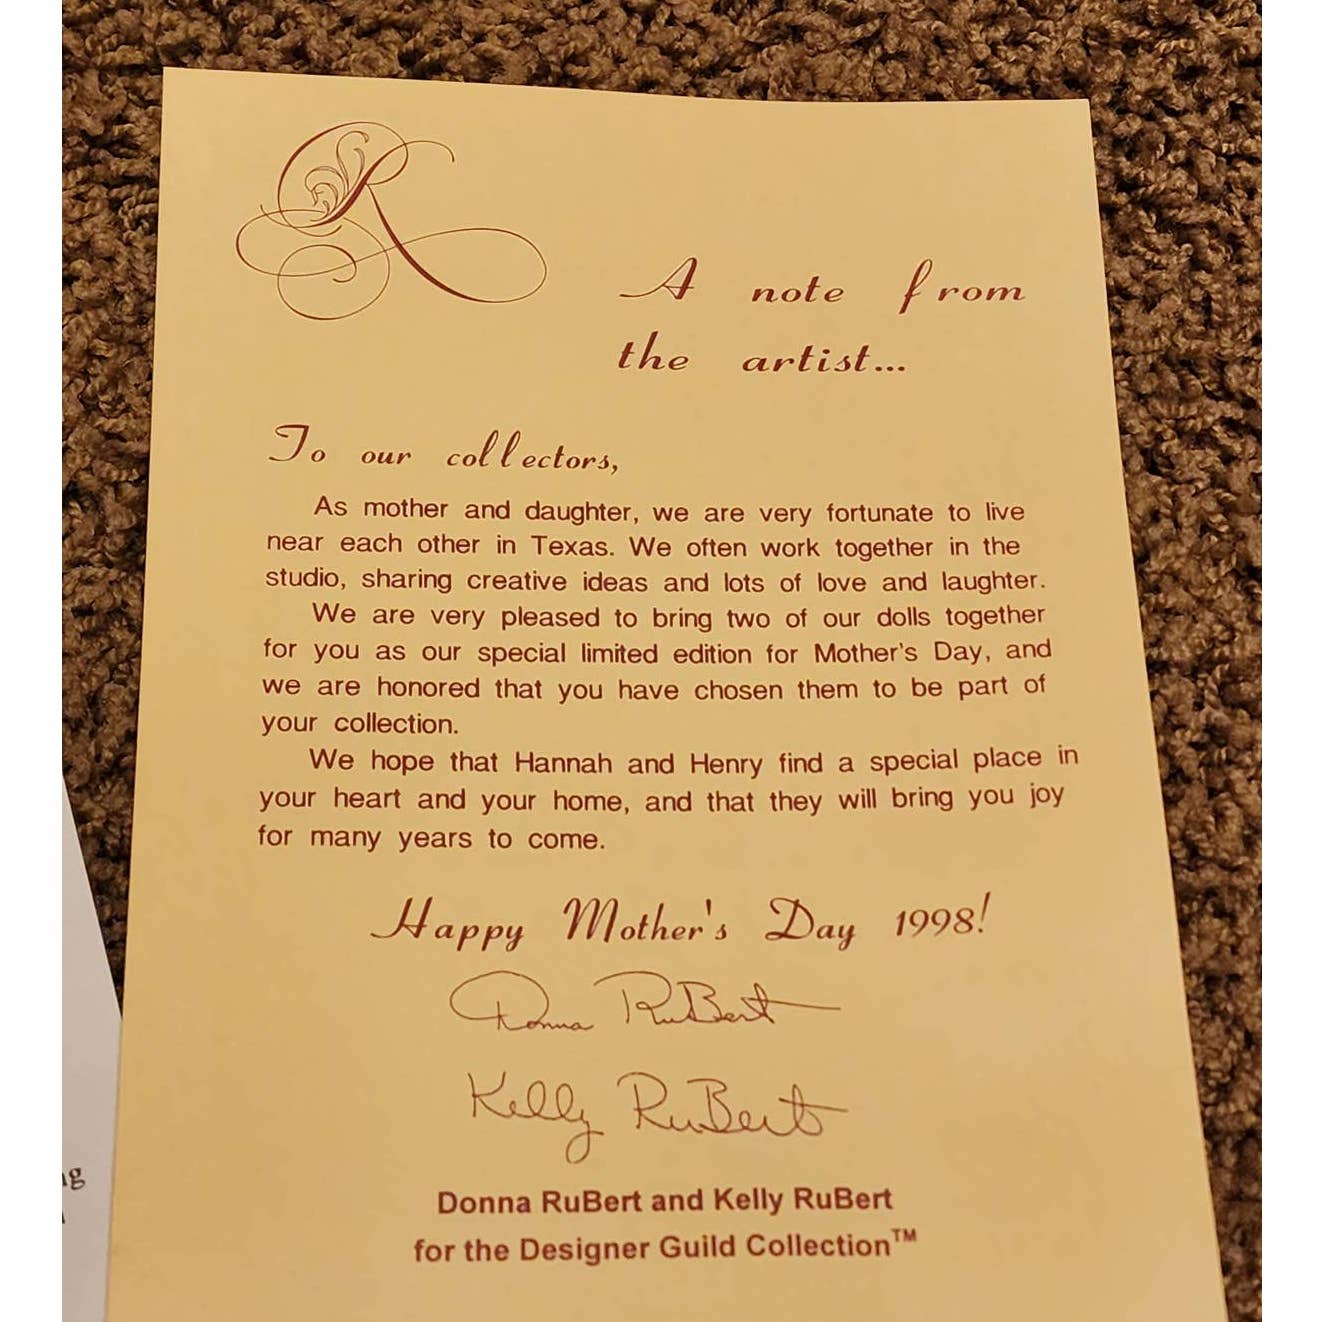 R
A note from
the artist...
To our collectors,
As mother and daughter, we are very fortunate to live
near each other in Texas. We often work together in the
studio, sharing creative ideas and lots of love and laughter.
We are very pleased to bring two of our dolls together
for you as our special limited edition for Mother's Day, and
we are honored that you have chosen them to be part of
your collection.
We hope that Hannah and Henry find a special place in
your heart and your home, and that they will bring you joy
for many years to come.
Happy Mother's Day 1998!
Donna RuBert
Kelly RuBert
Donna RuBert and Kelly RuBert
for the Designer Guild Collection™